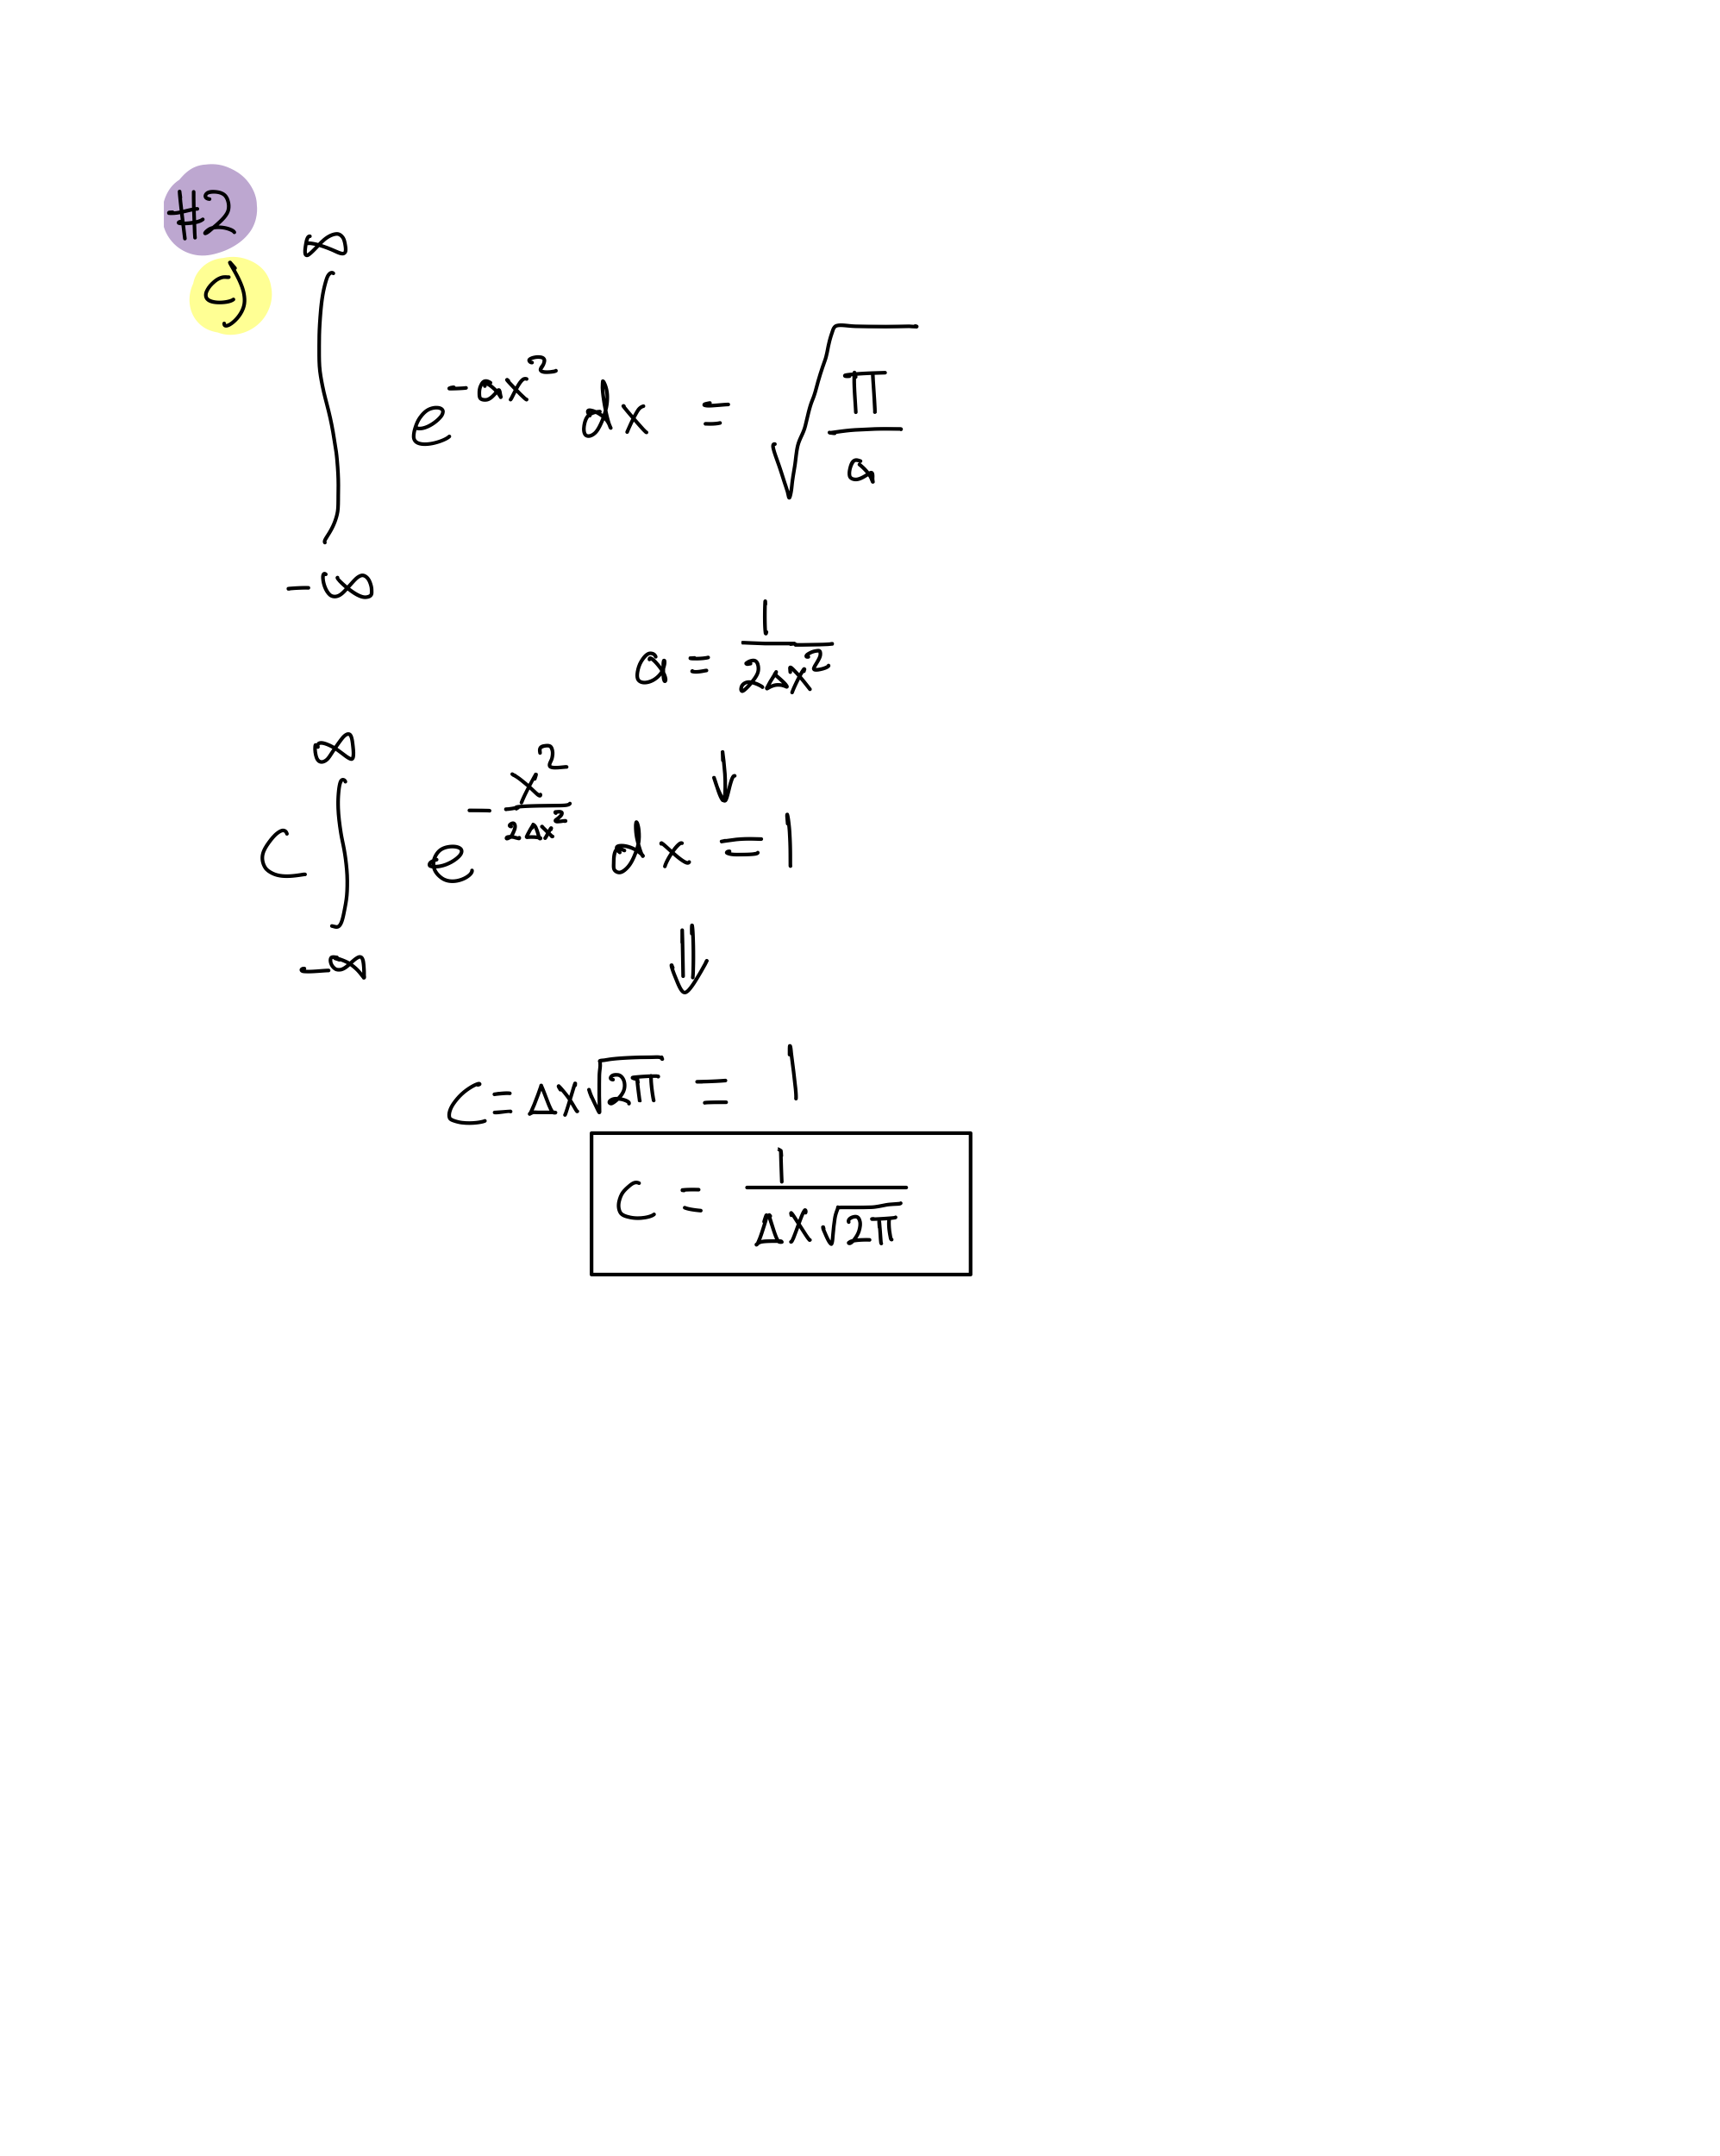 #2
c)
∫_{-∞}^{∞} e^{-ax^2} dx = √(π/a)
a = 1/(2Δx^2)
↓
C ∫_{-∞}^{∞} e^{-x^2/(2Δx^2)} dx = 1
⇓
C = Δx√(2π) = 1
C = 1/(Δx√(2π))